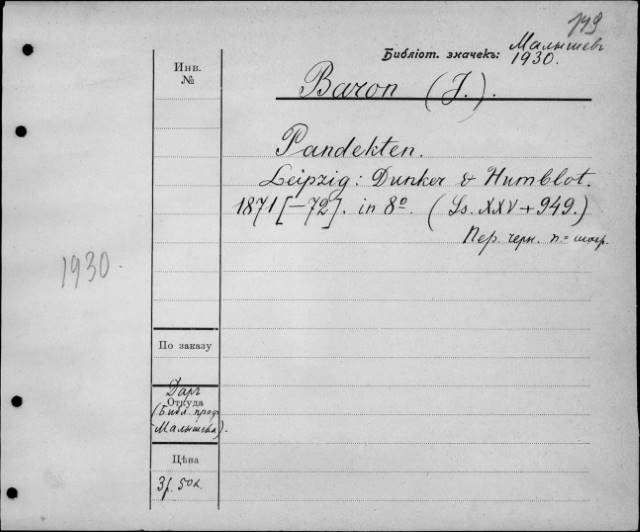 149
Библіот. значекъ: Малышевъ
1930.
Инв.
№
Baron (J.).
Pandekten.
Leipzig: Dunker & Humblot.
1871 [–72]. in 8º. (Ss. XXV + 949.)
Пер. черн. п=
1930.
По заказу
Даръ
Откуда
(Библ. проф.
Малышева).
Цѣна
3 р. 50 к.